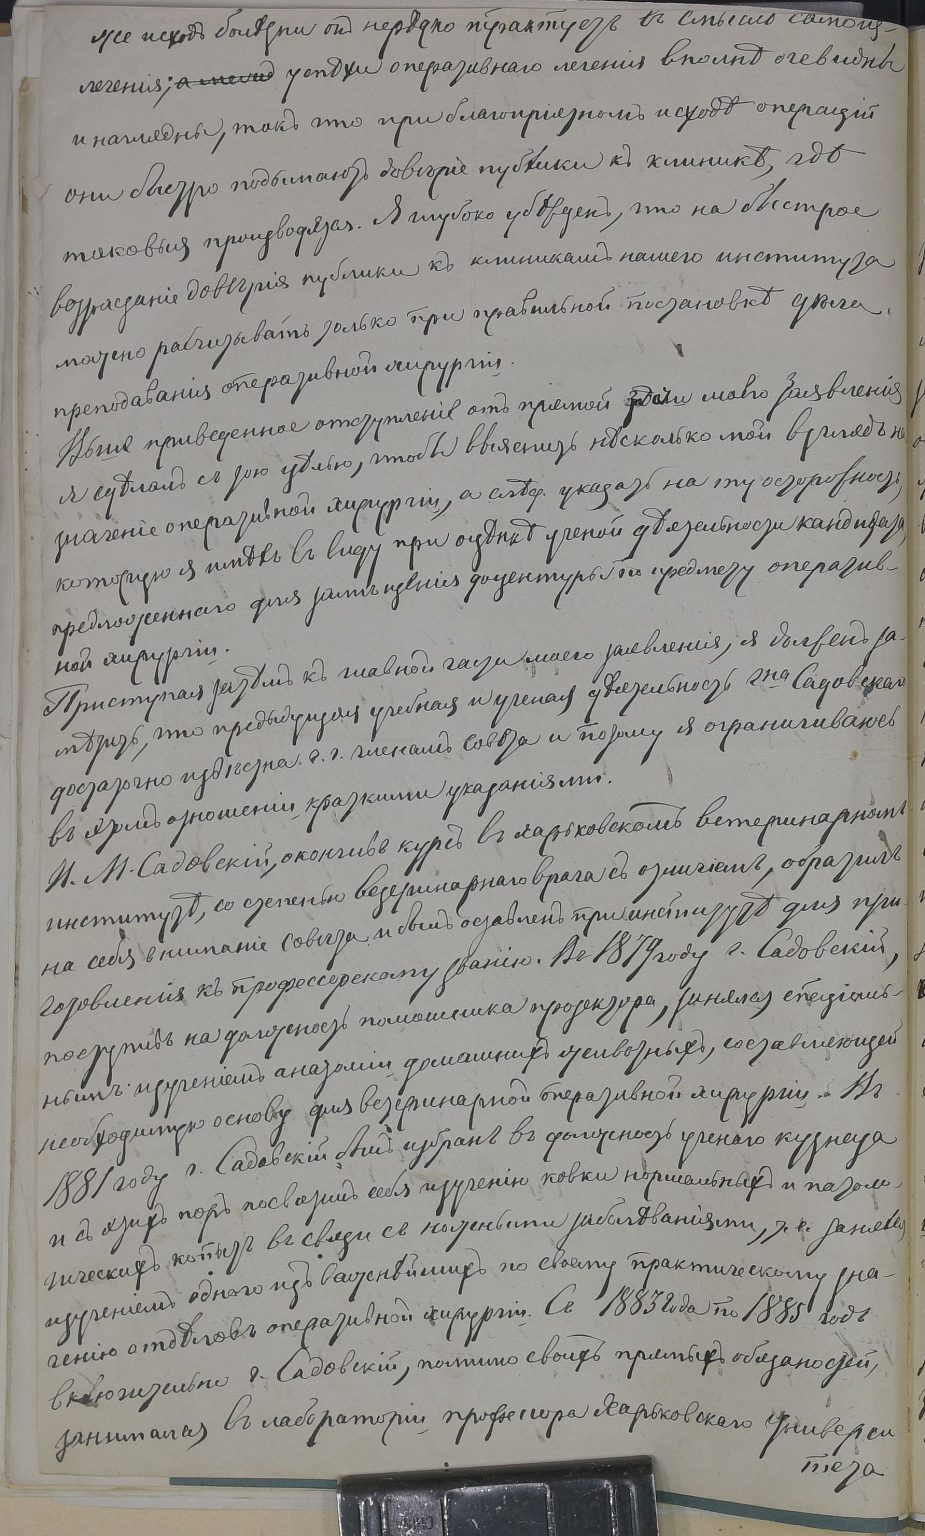 же исходъ болѣзни онъ нерѣдко трактуетъ въ смыслѣ самоиз-
леченія; успѣхи оперативнаго леченія вполнѣ очевидны
и наглядны, такъ что при благопріятномъ исходѣ операцій
они быстро подымаютъ довѣріе публики къ клиникѣ, гдѣ
таковыя производятся. Я глубоко убѣжденъ, что на быстрое
возрастаніе довѣрія публики къ клиникамъ нашего института
можно расчитывать только при правильной постановкѣ дѣла
преподаванія оперативной хирургіи.
Выше приведенное отступленіе отъ прямой моего заявленія
я сдѣлалъ съ тою цѣлью, чтобы выяснить нѣсколько мой взглядъ на
значеніе оперативной хирургіи, а слѣд. указать на ту осторожность,
которую я имѣлъ въ виду при оцѣнкѣ ученой дѣятельности кандидата,
предложеннаго для замѣщенія доцентуры по предмету оператив-
ной хирургіи.
Приступая затѣмъ къ главной части моего заявленія, я долженъ за-
мѣтить, что предыдущая учебная и ученая дѣятельность г-на Садовскаго
достаточно извѣстна г.г. членамъ Совѣта и потому я ограничиваюсь
въ этомъ отношеніи краткими указаніями.
И. М. Садовскій, окончивъ курсъ въ Харьковскомъ ветеринарномъ
институтѣ, со степенью ветеринарнаго врача съ отличіемъ, обратилъ
на себя вниманіе Совѣта и былъ оставленъ при институтѣ для при-
готовленія къ профессорскому званію. Въ 1879 году г. Садовскій,
поступивъ на должность помощника прозектора, занялся спеціаль-
нымъ изученіемъ анатоміи домашнихъ животныхъ, составляющей
необходимую основу для ветеринарной оперативной хирургіи. Въ
1881 году г. Садовскій былъ избранъ въ должность ученаго кузнеца
и съ этихъ поръ посвятилъ себя изученію ковки нормальныхъ и патоло-
гическихъ копытъ въ связи съ копытными заболѣваніями, т.е. занялся
изученіемъ одного изъ важнѣйшихъ по своему практическому зна-
ченію отдѣловъ оперативной хирургіи. Съ 1883 года по 1885 годъ
включительно г. Садовскій, помимо своихъ прямыхъ обязаностей,
занимался въ лабораторіи профессора Харьковскаго Универси
тета